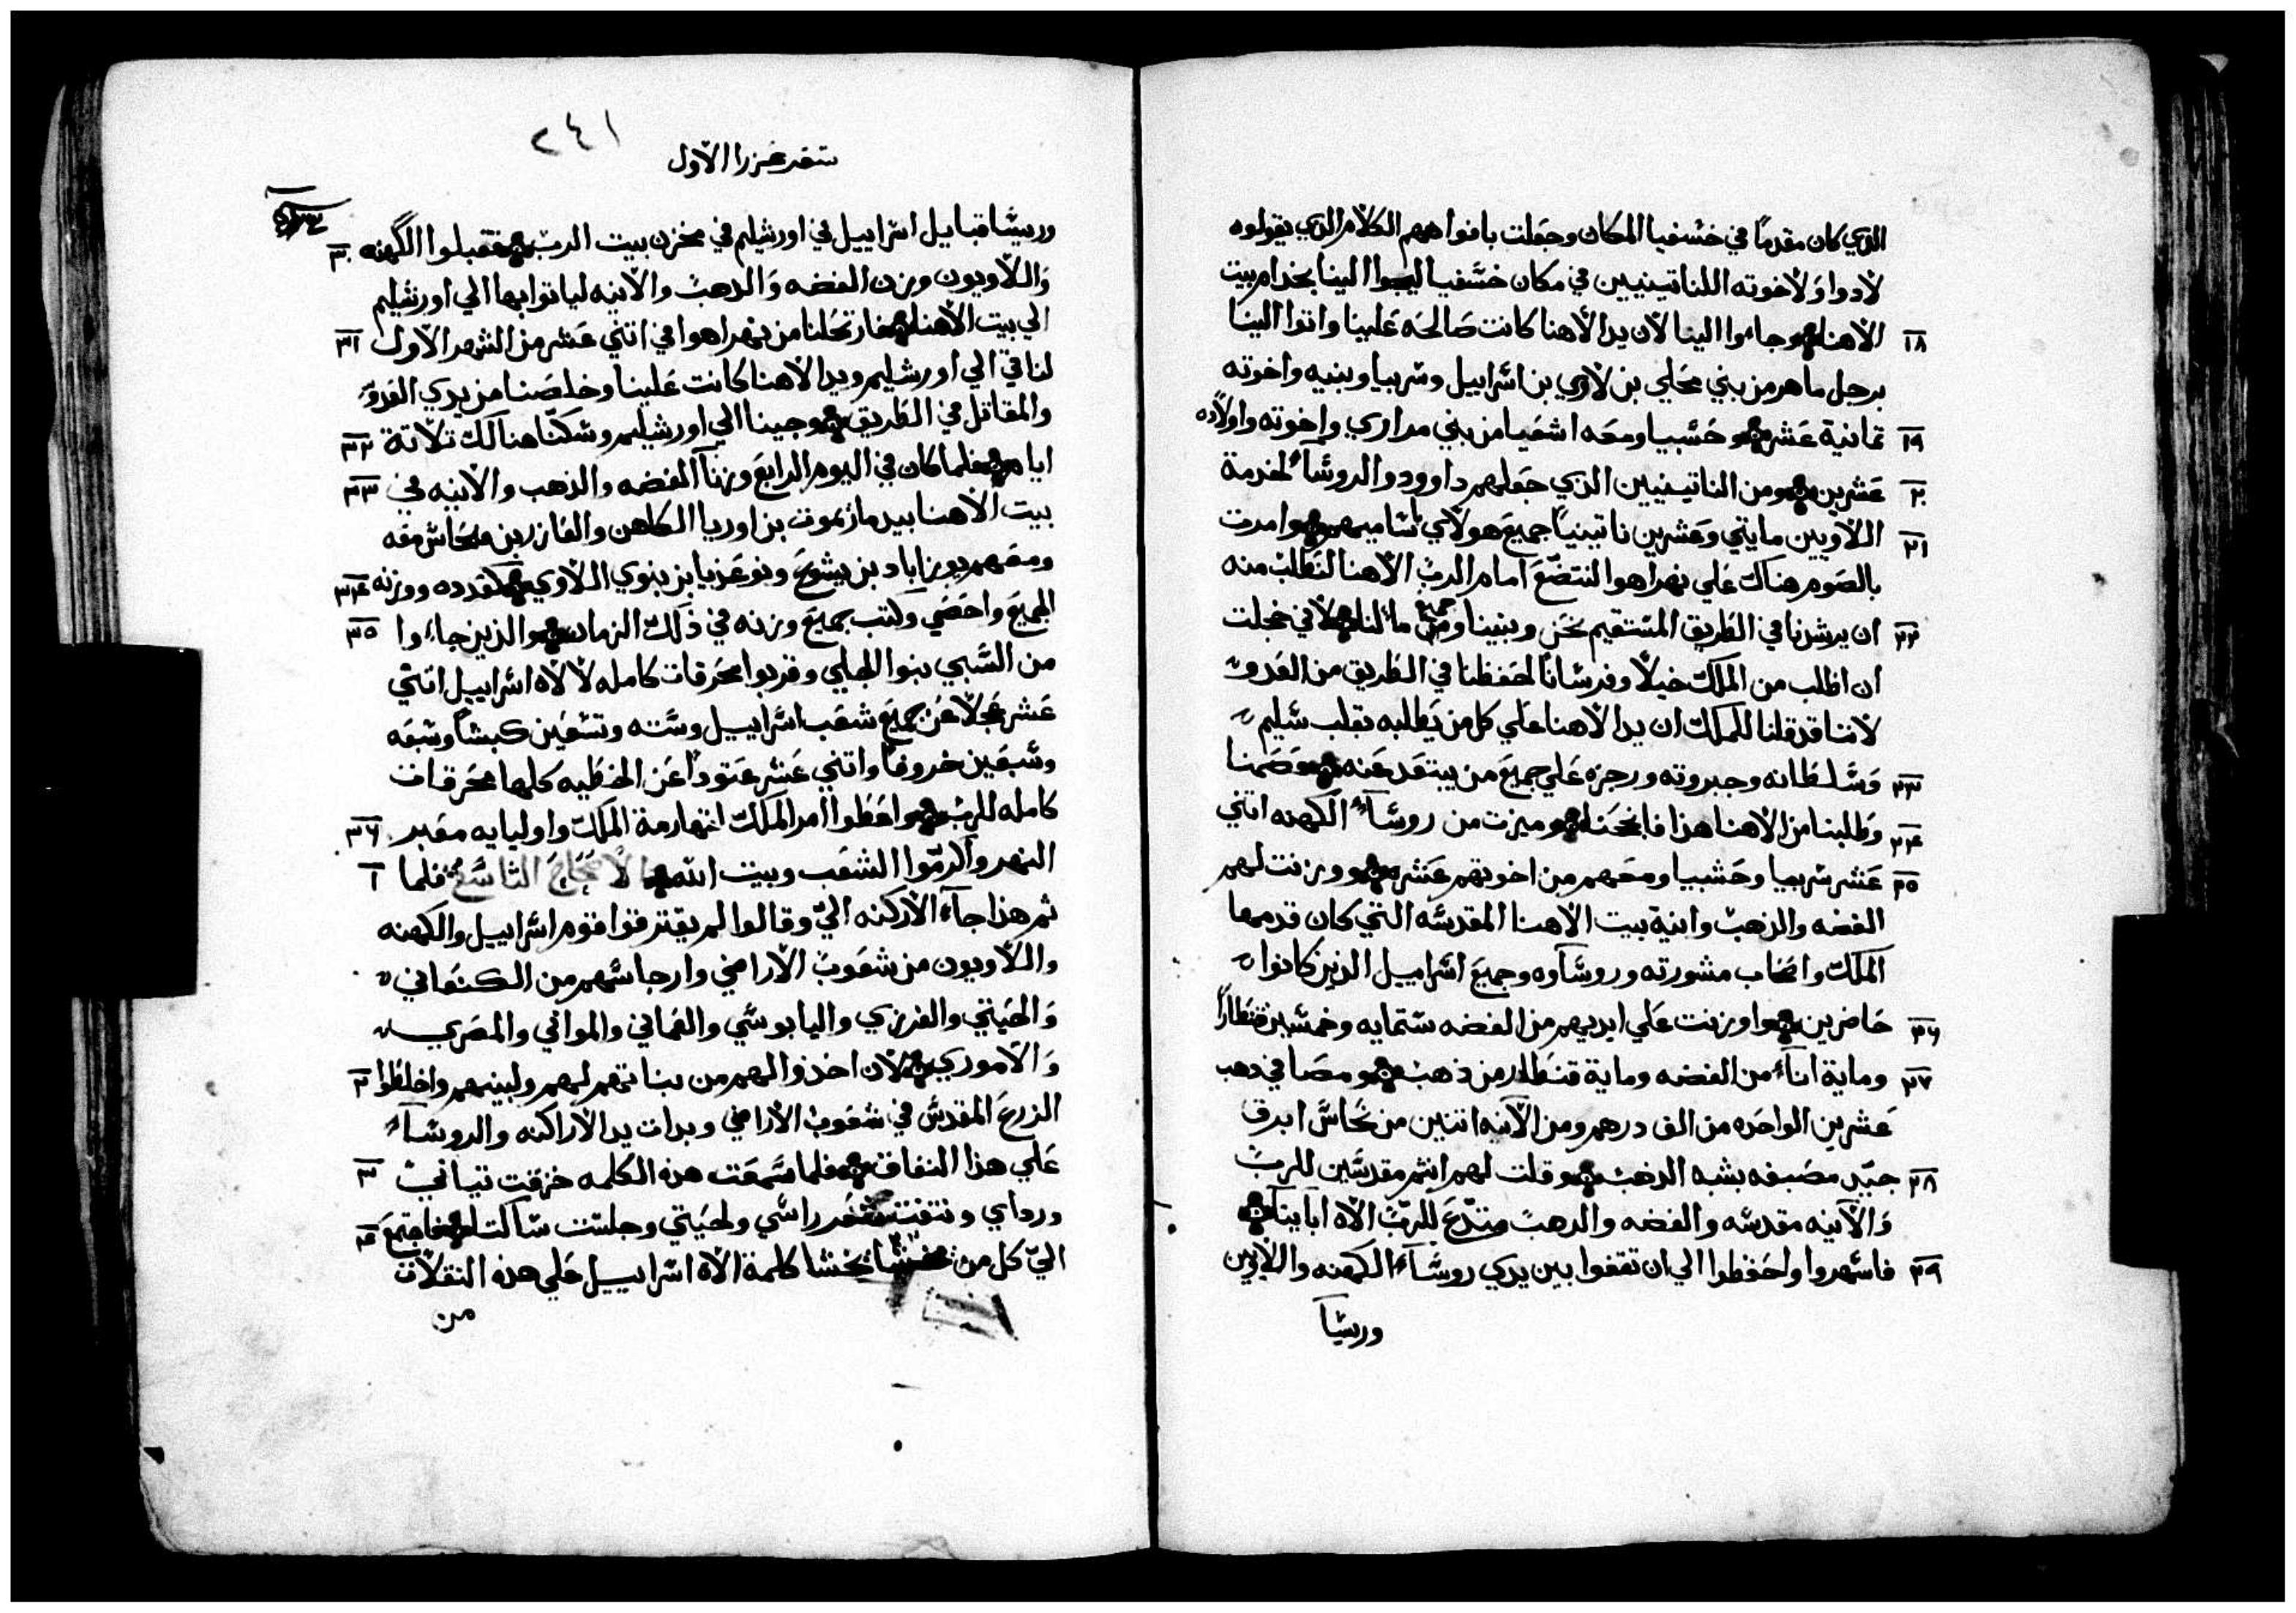 الذي كان مقدمًا في خسفيا المكان وجعلت بافواههم الكلام الذي يقولوه
لادوا ولاخوته اللناتينيين في مكان خسفيا ليجوا الينا بخدام بيت
الاهنا وجاءوا الينا لان يد الاهنا كانت صالحه علينا واتوا الينا ١٨
برجل ماهر من بني محلي بن لاوي بن اسراييل وسربيا وبنيه واخوته
تمانية عشر وحسبيا ومعه اشعيا من بني مداري واخوته واولاده ١٩
عشرين ومن الناتينيين الذي جعلهم داوود والروسآء لخدمة ٢٠
اللاويين مايتي وعشرين ناتينيًا جميع هولاي باساميهم وامرت ٢١
بالصوم هناك علي نهر اهوا لنتضع امام الرب الاهنا لنطلب منه
ان يرشدنا في الطريق المستقيم نحن وبنينا وجميع ما لنا لاني خجلت ٢٢
ان اطلب من الملك خيلًا وفرسانًا لحفظنا في الطريق من العدو
لاننا قد قلنا للملك ان يد الاهنا علي كل من يطلبه بقلب سليم
وسلطانه وجبروته ورجزه علي جميع من يبتعد عنه وصمنا ٢٣
وطلبنا من الاهنا هذا فانجحنا وميزت من روسآء الكهنه اتني ٢٤
عشر سربيا وحشبيا ومعهم من اخوتهم عشره ووزنت لهم ٢٥
الفضه والذهب وانية بيت الاهنا المقدسه التي كان قدمها
الملك واصحاب مشورته وروسآوه وجميع اسراييل الذين كانوا
حاضرين واوزنت علي ايديهم من الفضه ستمايه وخمسين قنطارًا ٢٦
وماية انآء من الفضه وماية قنطار من ذهب ومصافي ذهب ٢٧
عشرين الواحده من الف درهم ومن الآنيه اتنين من نحاس ابرق
جيّد مصبغه بشبه الذهب وقلت لهم انتم مقدسين للرب ٢٨
والآنيه مقدسه والفضه والدهب للرب الاه اباينآ
فاسهروا واحفظوا الي ان تقفوا بين يدي روسآء الكهنه واللاويين ٢٩
وريسآ
٢٤١
سفر عزرا الاول
وريسا قبايل اسراييل في اورشليم في مخزن بيت الرب فقبلوا الكهنه ٣٠
واللاويون وزن الفضه والدهب والآنيه لياتوا بها الي اورشليم
الي بيت الاهنا فارتحلنا من نهر اهوا في اتني عشر من الشهر الاول ٣١
لناتي الي اورشليم ويد الاهنا كانت علينا وخلصنا من يدي العدو
والمقاتل في الطريق وجينا الي اورشليم وسكنا هنالك تلاتة ٣٢
ايام فلما كان في اليوم الرابع وزنآ الفضه والذهب والآنيه في ٣٣
بيت الاهنا بيد مازموت بن اوريا الكاهن والعازر بن معه
ومعهم يوزاباد بن يشوع ونوعزيا بن بنوي اللاوي كقدده ووزنه ٣٤
الجميع واحضي وكتب جميع وزنه في ذلك الزمان والذين جاءوا ٣٥
من السبي بنوا الجلي وقربوا محرقات كامله لالاه اسراييل اتني
عشر عجلًا عن جميع شعب اسراييل وسته وتسعين كبشًا وسبعه
وسبعين خروفًا واتني عشر عتودًا عن الخطيه كلها محرقات
كامله للرب واعطوا امر الملك لقهارمة الملك واوليايه معبر ٣٦
النهر واكرموا الشعب وبيت الله الاصحاح التاسع فلما ١
تم هذا جآء الاركنه اليّ وقالوا لم يفترقوا قوم اسراييل والكهنه
واللاويون من شعوب الاراضي وارجاسهم من الكنعاني
والحيتي والفرزي واليابوسي والعماني والموابي والمصري
والاموري لان اخذوا لهم من بناتهم لهم ولبينهم واخلطوا ٢
الزرع المقدس في شعوب الاراضي وبدات يد الاراكنه والروسآء
علي هذا النفاق فلما سمعت هذه الكلمه خزقت تيابي ٣
ورداي ونتفت شعر راسي ولحيتي وجلست ساكتا فاجتمع ٤
اليّ كل من يخشا كلمة الاه اسراييل علي هذه النقلات
من